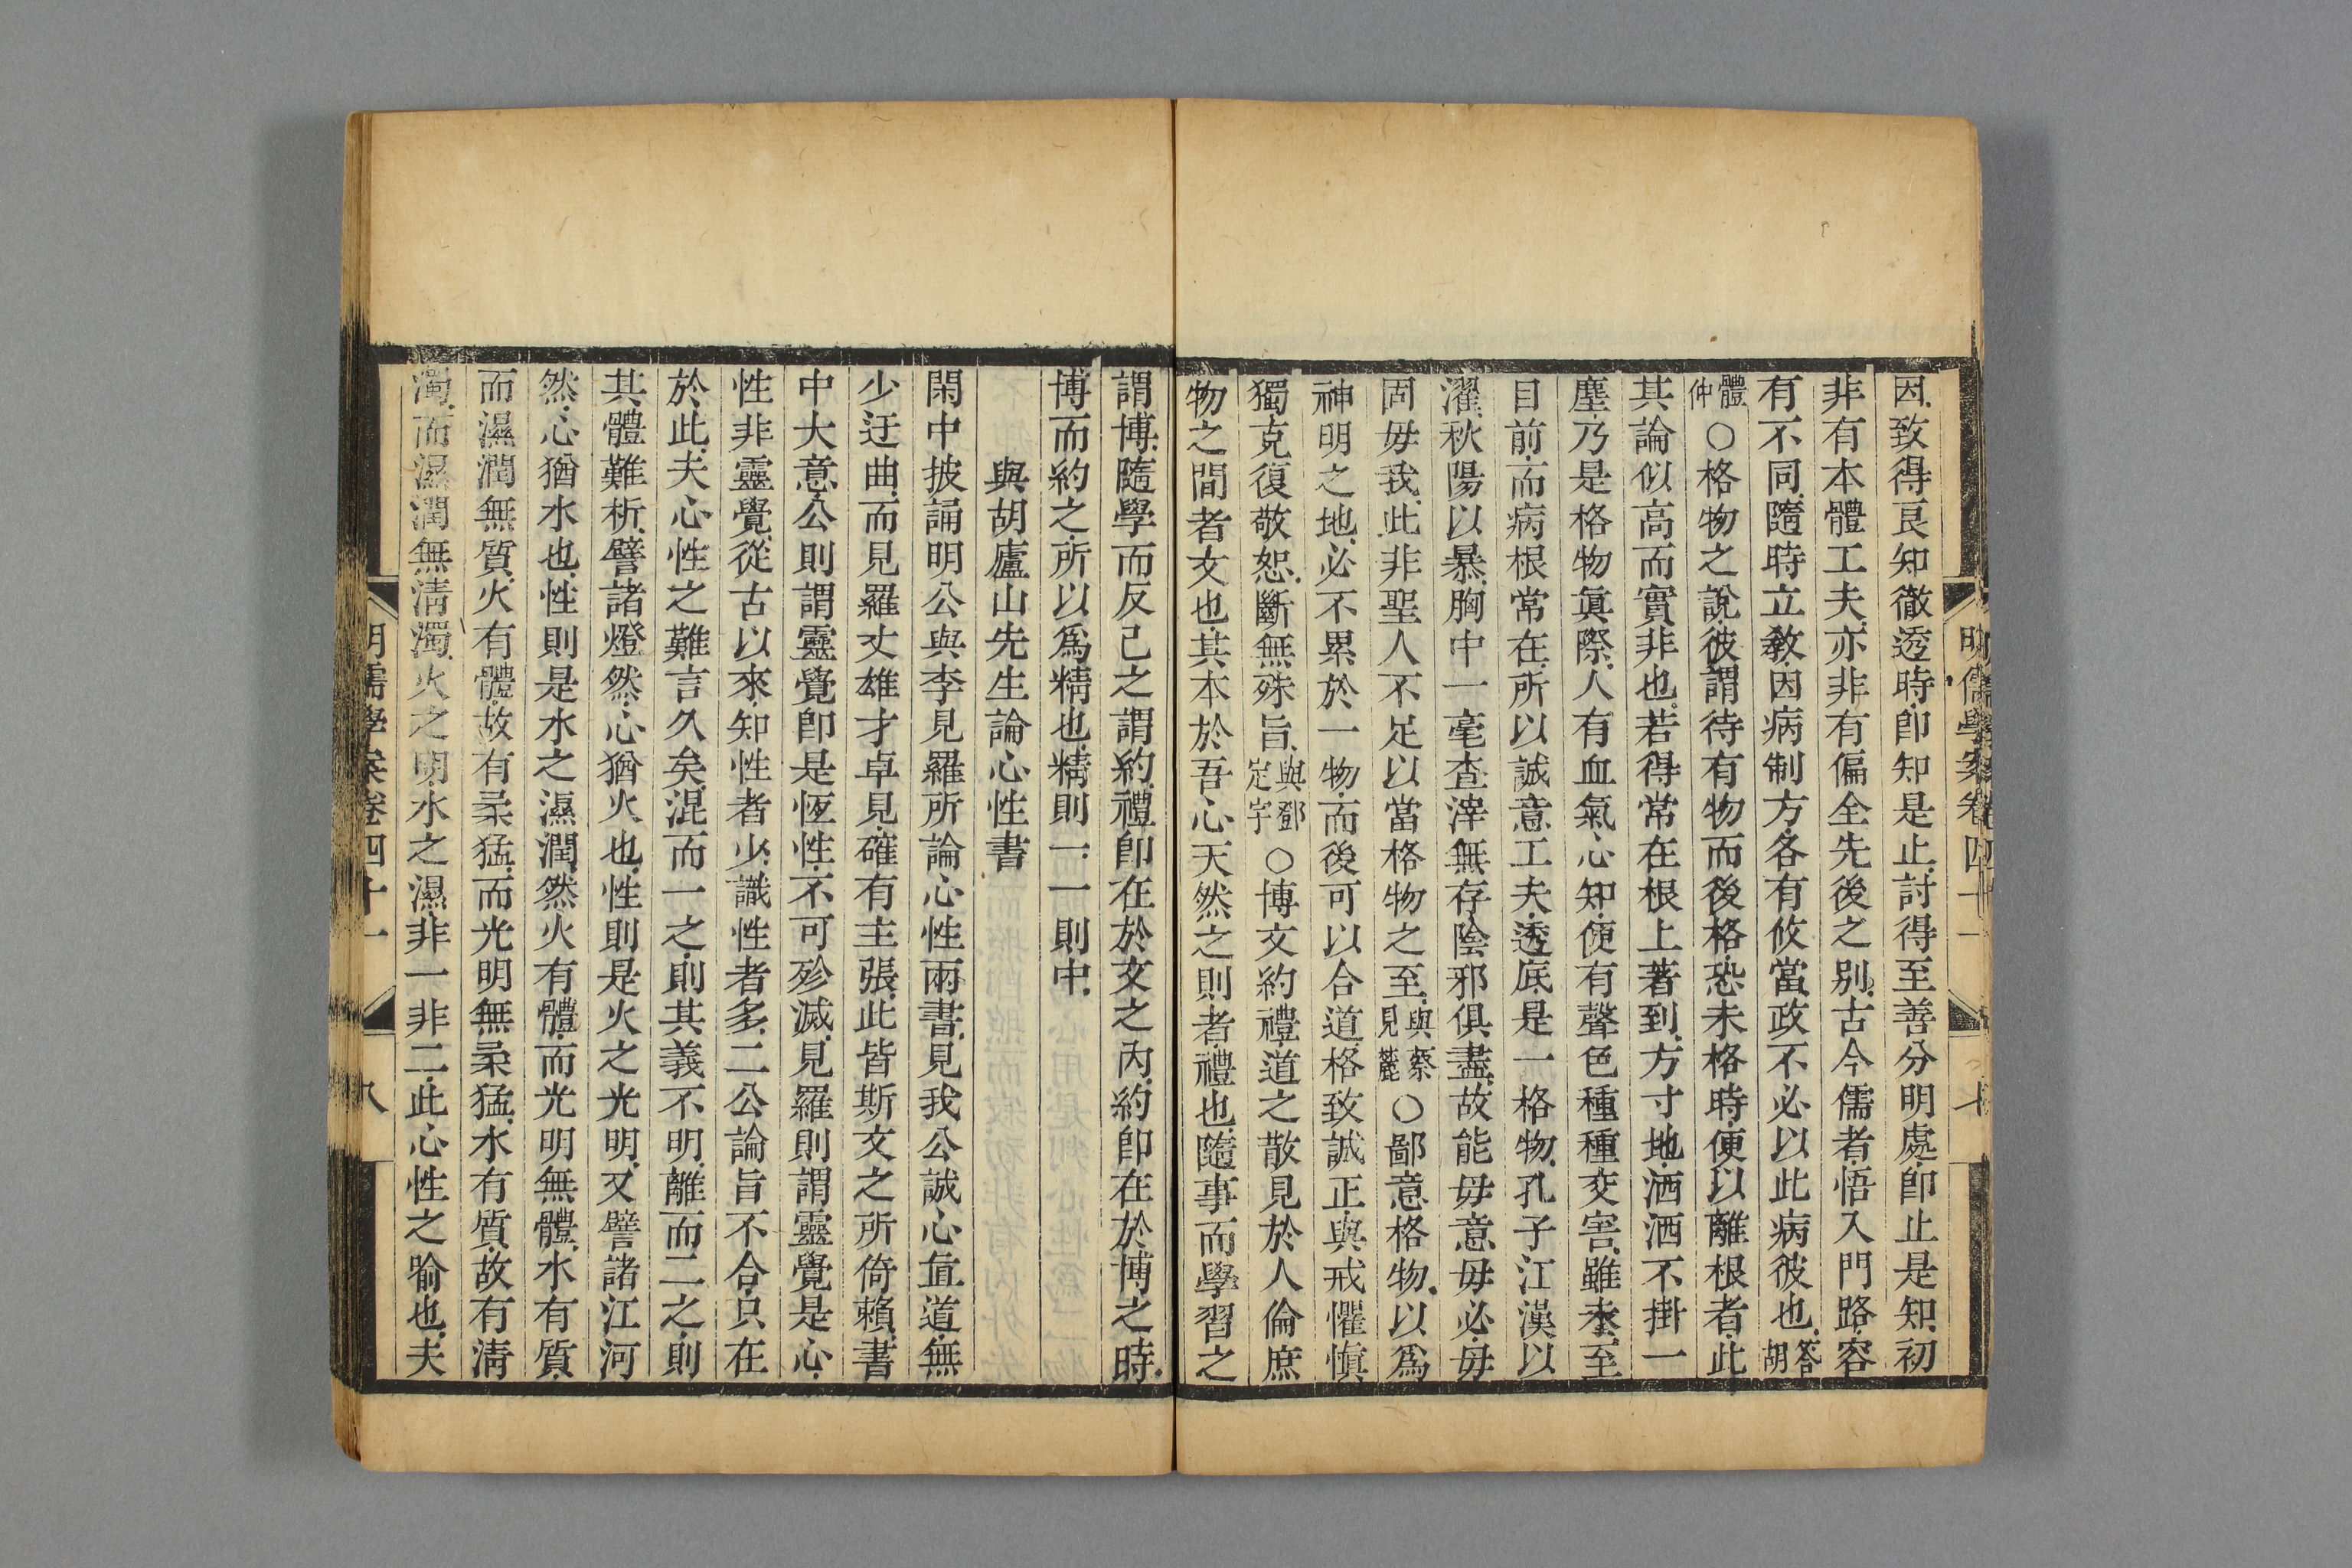 因致得良知徹透時卽知是止討得至善分明處卽止是知初
非有本體工夫亦非有偏全先後之别古今儒者悟入門路容
有不同隨時立敎因病制方各有攸當政不必以此病彼也答胡
體仲○格物之說彼謂待有物而後格恐未格時便以離根者此
其論似高而實非也若得常在根上著到方寸地洒洒不掛一
塵乃是格物眞際人有血氣心知便有聲色種種交害雖未至
目前而病根常在所以誠意工夫透底是一格物孔子江漢以
濯秋陽以暴胸中一毫查滓無存陰邪俱盡故能毋意毋必毋
固毋我此非聖人不足以當格物之至與蔡見麓○鄙意格物以爲
神明之地必不累於一物而後可以合道格致誠正與戒懼愼
獨克復敬恕斷無殊旨與鄧定宇○博文約禮道之散見於人倫庶
物之間者文也其本於吾心天然之則者禮也隨事而學習之
謂博隨學而反己之謂約禮卽在於文之內約卽在於博之時
博而約之所以爲精也精則一一則中
與胡廬山先生論心性書
閑中披誦明公與李見羅所論心性兩書見我公誠心直道無
少迂曲而見羅丈雄才卓見確有主張此皆斯文之所倚賴書
中大意公則謂靈覺卽是恆性不可殄滅見羅則謂靈覺是心
性非靈覺從古以來知性者少識性者多二公論旨不合只在
於此夫心性之難言久矣混而一之則其義不明離而二之則
其體難析譬諸燈然心猶火也性則是火之光明又譬諸江河
然心猶水也性則是水之濕潤然火有體而光明無體水有質
而濕潤無質火有體故有柔猛而光明無柔猛水有質故有淸
濁而濕潤無淸濁火之明水之濕非一非二此心性之喻也夫
明儒學案卷四十一
七
明儒學案卷四十一
八